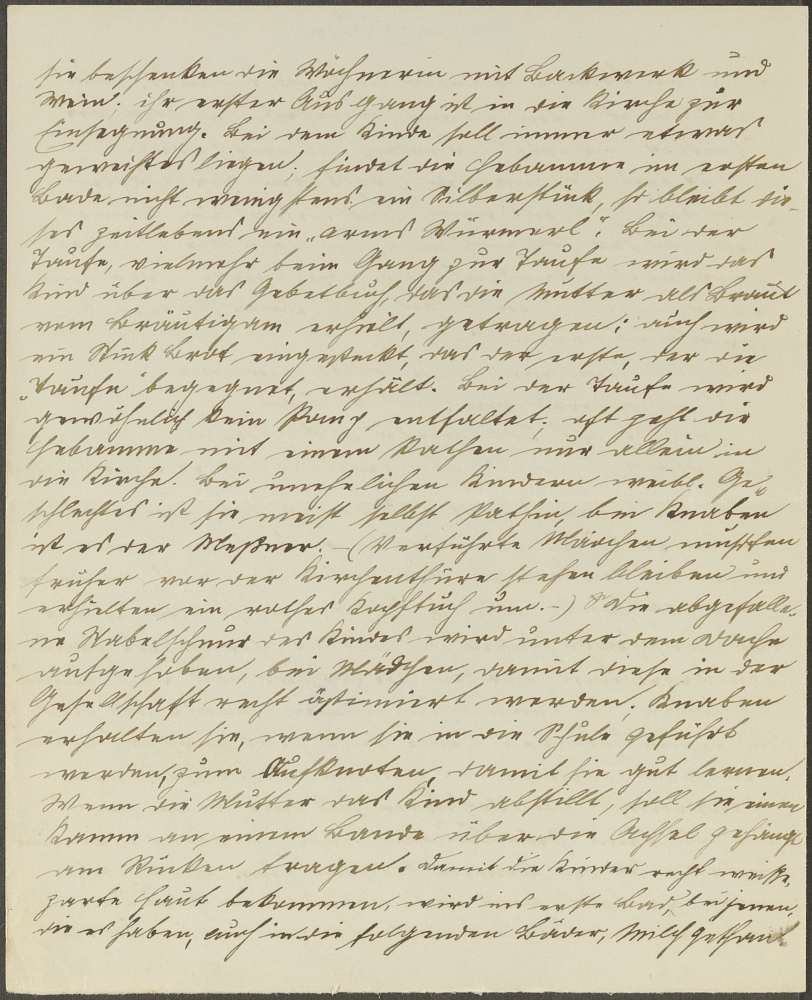 sie beschenken die Wöchnerin mit Backwerk und
Wein; ihr erster Ausgang ist in die Kirche zur
Einsegnung. Bei dem Kinde soll immer etwas
geweihtes liegen; findet die Hebamme im ersten
Bade nicht wenigstens ein Silberstück, so bleibt die-
ses zeitlebens ein „arms Würmerl". Bei der
Taufe, vielmehr beim Gang zur Taufe wird das
Kind über das Gebetbuch, das die Mutter als Braut
vom Bräutigam erhielt, getragen; auch wird
ein Stück Brot eingesteckt, das der erste, der die
„Taufe" begegnet, erhält. Bei der Taufe wird
gewöhnlich kein Pomp entfaltet; oft geht die
Hebamme mit einem Pathen nur allein in
die Kirche. Bei unehelichen Kindern weibl. Ge-
schlechtes ist sie meist selbst Pathin, bei Knaben
ist es der Meßner. – (Verführte Mädchen mußten
früher vor der Kirchenthüre stehen bleiben und
erhielten ein rothes Kopftuch um. –) Die abgefalle-
ne Nabelschnur des Kindes wird unter dem Dache
aufgehoben, bei Mädchen, damit diese in der
Gesellschaft recht ästimiert werden; Knaben
erhalten sie, wenn sie in die Schule geführt
werden, zum Aufknoten, damit sie gut lernen.
Wenn die Mutter das Kind abstillt, soll sie einen
Kamm an einem Bande über die Achsel gehängt
am Rücken tragen. Damit die Kinder recht weiße,
zarte Haut bekommen, wird ins erste Bad, bei jenen,
die es haben, auch in die folgenden Bäder, Milch gethan.